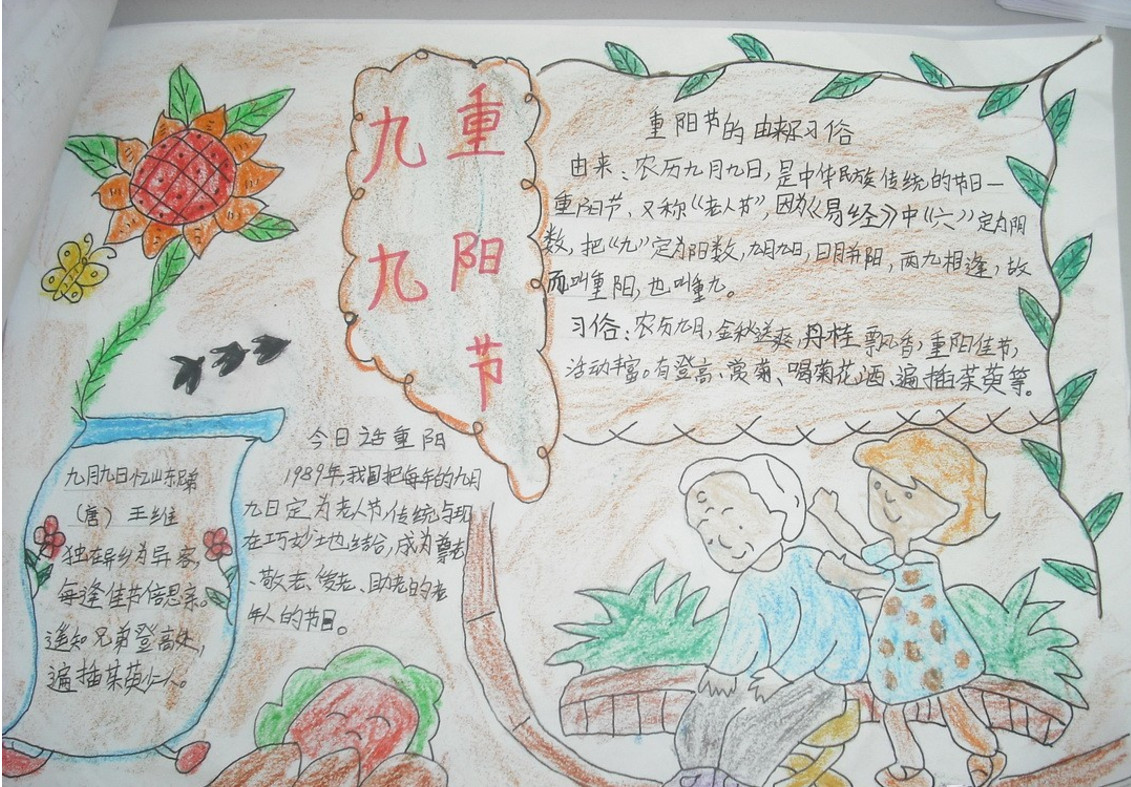 九九重阳节
重阳节的由来及习俗
由来:农历九月九日,是中华民族传统的节日一
重阳节,又称“老人节”,因为《易经》中“六”定为阴
数,把“九”定为阳数,九月九日,日月并阳,两九相逢,故
而叫重阳,也叫重九。
习俗:农历九月,金秋送爽,丹桂飘香,重阳佳节,
活动丰富。有登高、赏菊、喝菊花酒、遍插茱萸等。
今日话重阳
1989年,我国把每年的九月
九日定为老人节,传统与现
在巧妙土也结合,成为尊老
、敬老、爱老、助老的老
年人的节日。
九月九日忆山东兄弟
(唐) 王维
独在异乡为异客,
每逢佳节倍思亲。
遥知兄弟登高处,
遍插茱萸少一人。